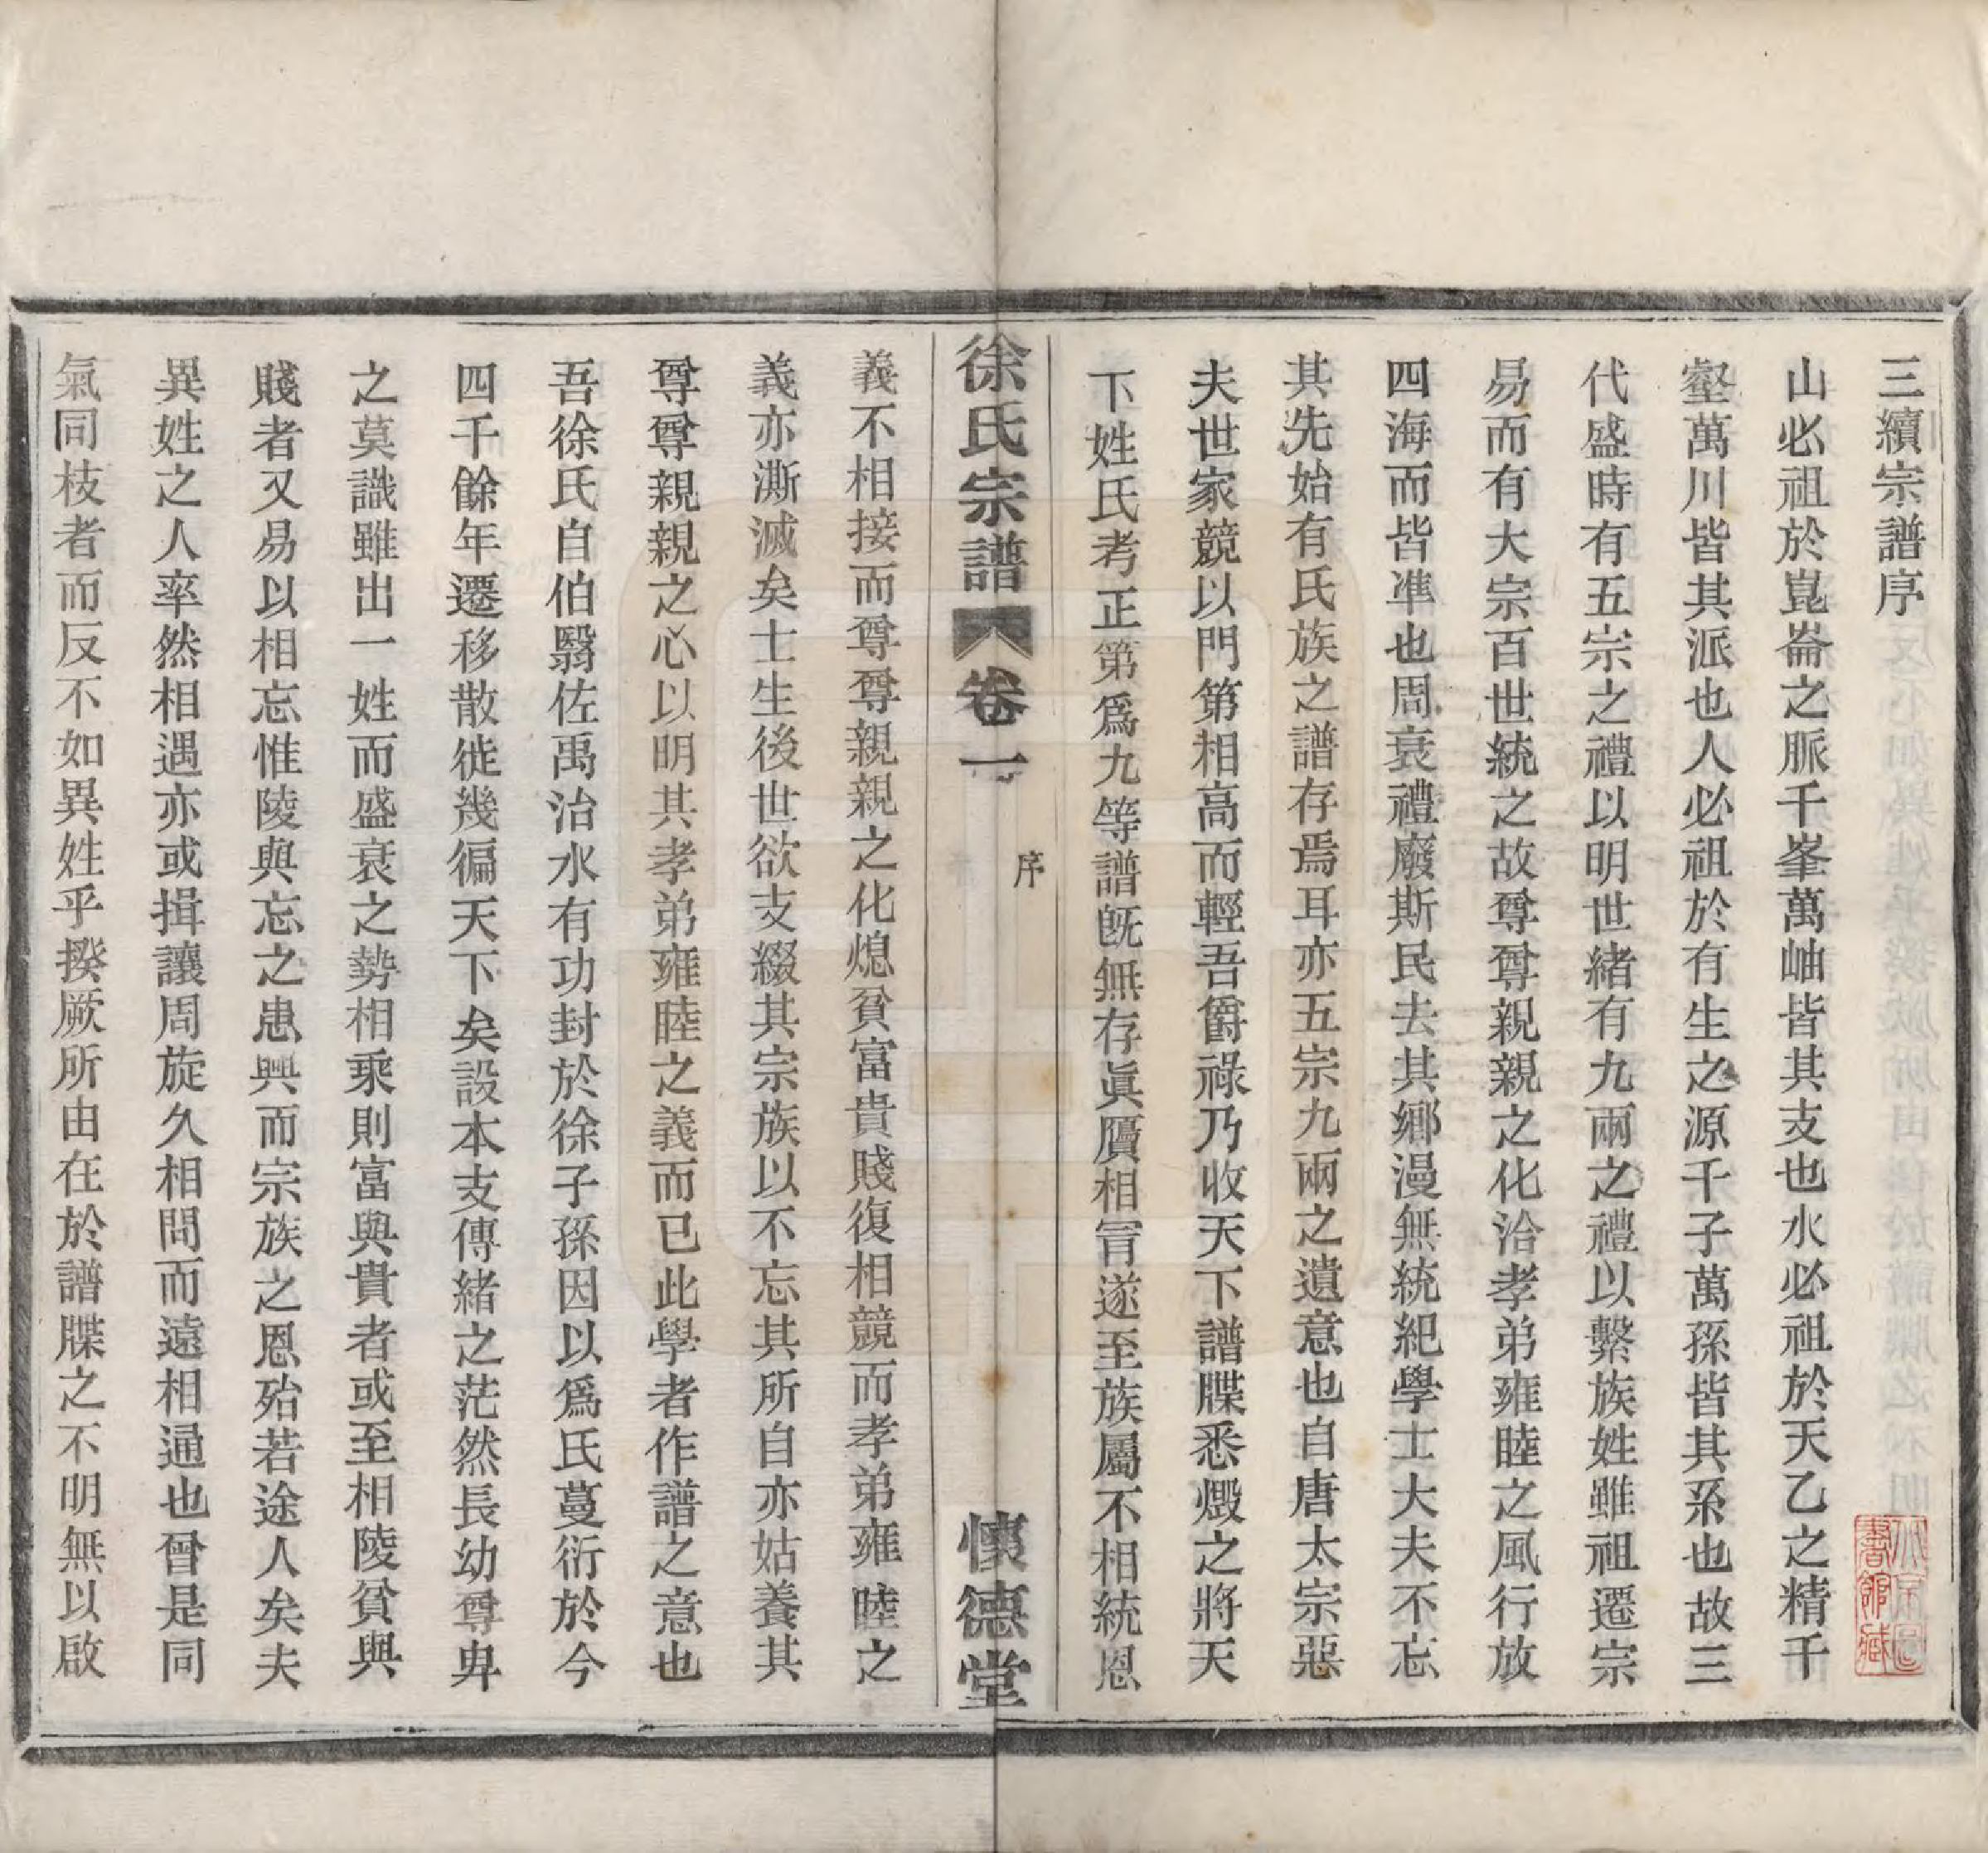 三續宗譜序
山必祖於崑崙之脈千峯萬岫皆其支也水必祖於天乙之精千
壑萬川皆其派也人必祖於有生之源千子萬孫皆其系也故三
代盛時有五宗之禮以明世緒有九兩之禮以繫族姓雖祖遷宗
易而有大宗百世統之故尊尊親親之化洽孝弟雍睦之風行放
四海而皆準也周衰禮廢斯民去其鄉漫無統紀學士大夫不忘
其先始有氏族之譜存焉耳亦五宗九兩之遺意也自唐太宗惡
夫世家競以門第相高而輕吾爵祿乃收天下譜牒悉燬之將天
下姓氏考正第爲九等譜旣無存眞贋相冐遂至族屬不相統恩
徐氏宗譜 卷一 序 懷德堂
義不相接而尊尊親親之化熄貧富貴賤復相競而孝弟雍睦之
義亦澌滅矣士生後世欲支綴其宗族以不忘其所自亦姑養其
尊尊親親之心以明其孝弟雍睦之義而已此學者作譜之意也
吾徐氏自伯翳佐禹治水有功封於徐子孫因以爲氏蔓衍於今
四千餘年遷移散徙幾徧天下矣設本支傳緒之茫然長幼尊卑
之莫識雖出一姓而盛衰之勢相乘則富與貴者或至相陵貧與
賤者又易以相忘惟陵與忘之患興而宗族之恩殆若途人矣夫
異姓之人率然相遇亦或揖讓周旋久相問而遠相通也曾是同
氣同枝者而反不如異姓乎揆厥所由在於譜牒之不明無以啟